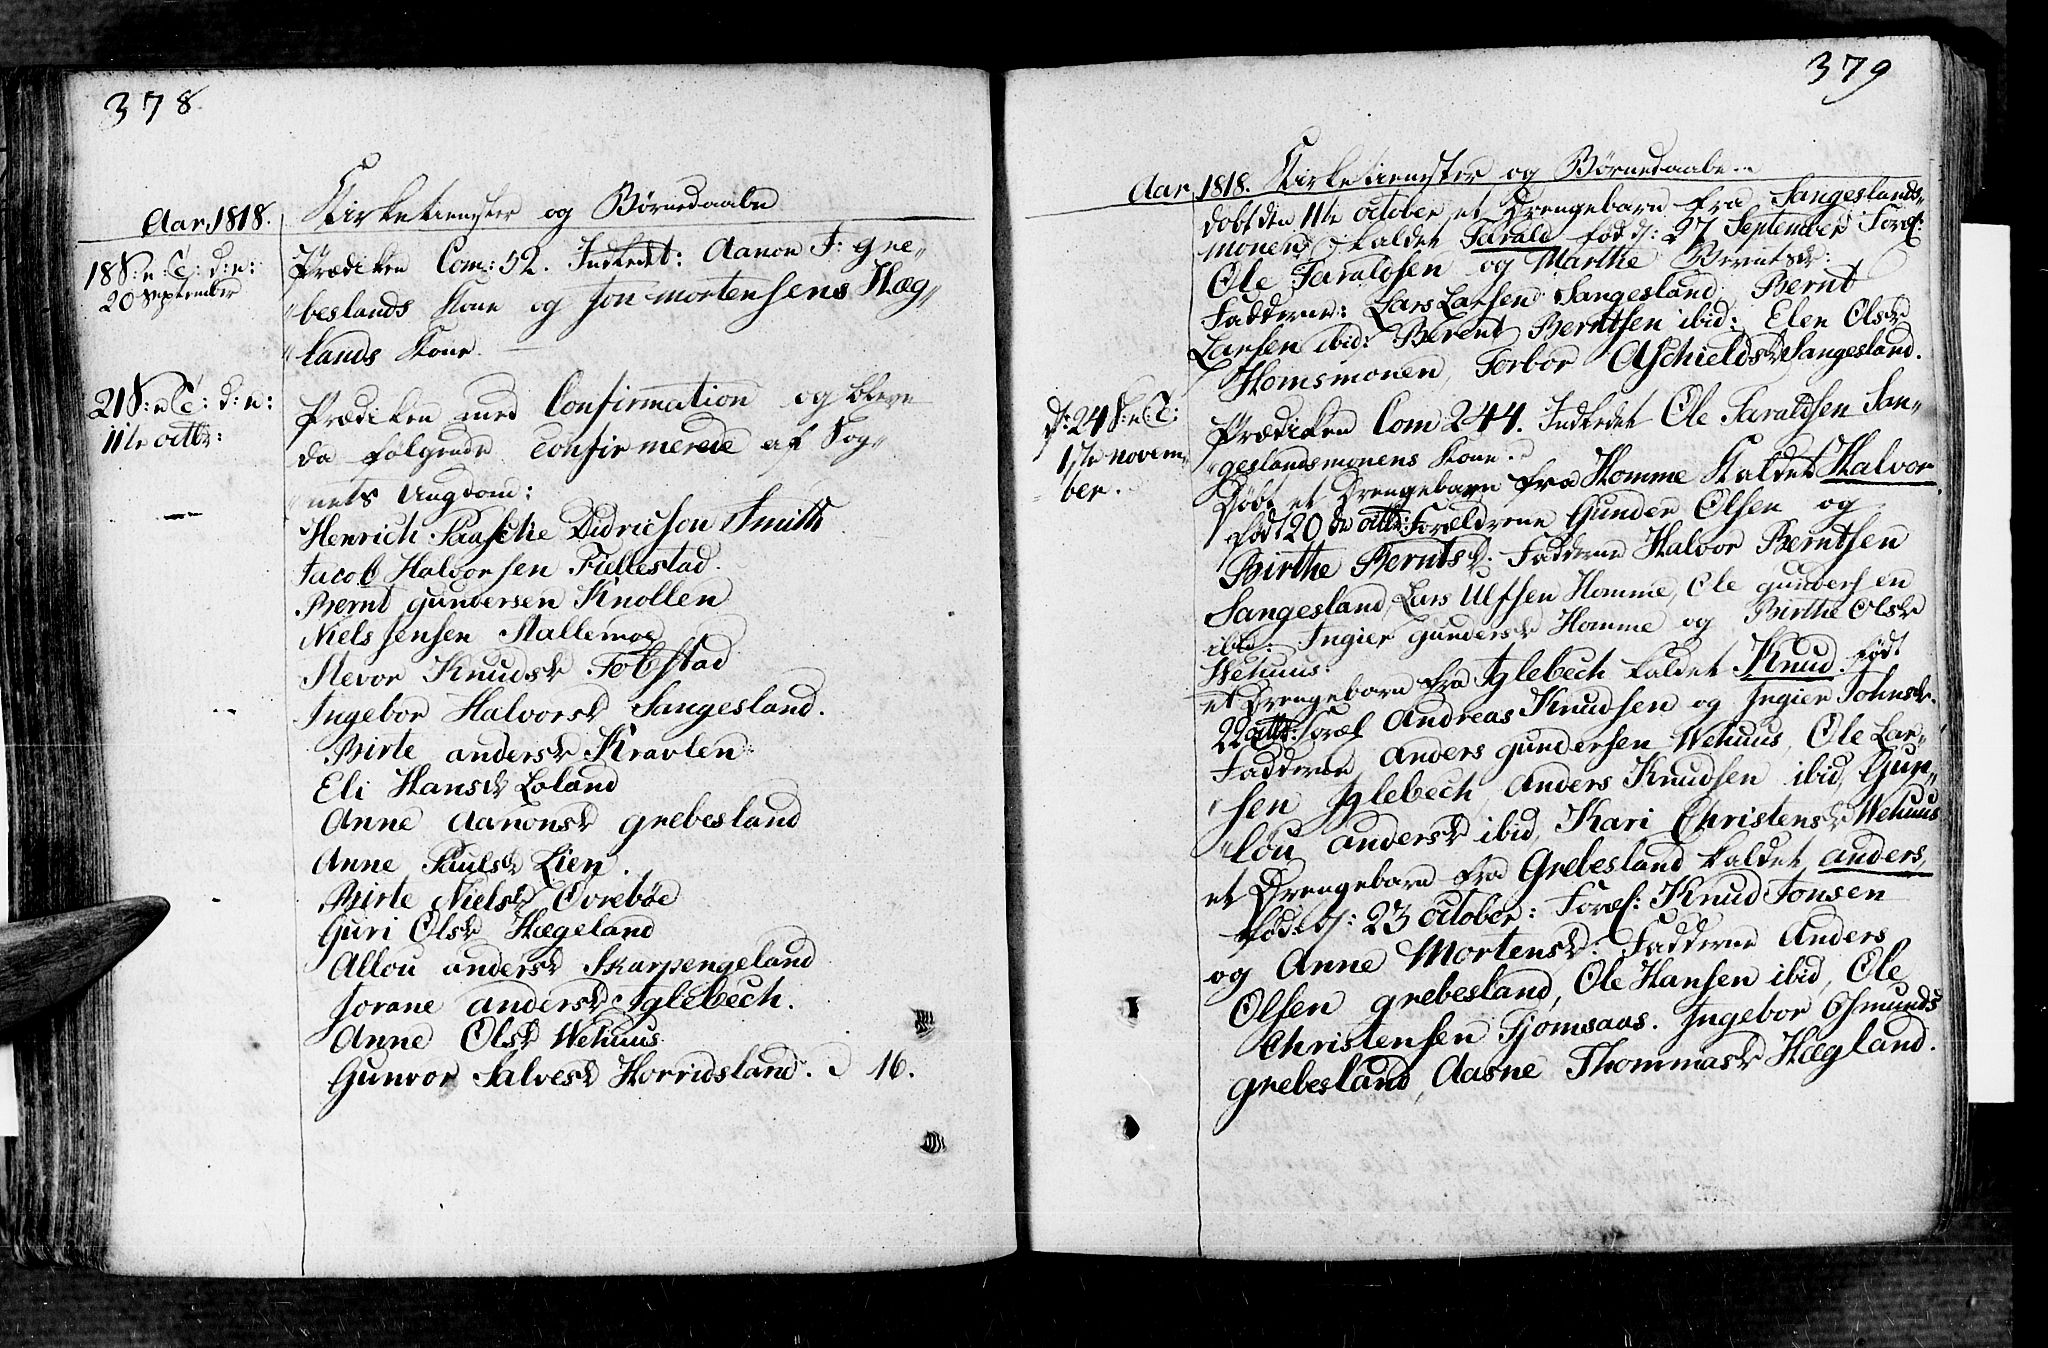 378
Aar 1818. Kirketienester og Børnedaabe
18 S: e: T: d: e:
20 September
Prædiken Com: 52. Indledt: Aanon T: Gre„
„beslands Kone og Jon Mortensens Hæg„
„lands Kone.
21 S: e T: d: e:
11te octbr:
Prædiken med Confirmation og bleve
da følgende confirmerede af Sog„
„nets Ungdom:
Henrich Didricson Smith
Jacob Halvorsen Fiellestad.
Bernt Gundersen Knollen
Niels Jensen Stallemoe
Knudsd. Tobstad
Ingebor Halvorsd Sangesland.
Birte Andersd Kravlen.
Eli Hansd Loland
Anne Aanonsd Grebesland
Anne Paulsd Lien.
Birte Nielsd Øvrebøe
Guri Olsd Hægeland
Allou Andersd Skarpengeland
Jorane Andersd Iglebech.
Anne Olsd Wehuus
Gunvor Salvesd Horridsland. 16.
379
Aar 1818. Kirketienester og Børnedaabe
Døbt den 11te october et Drengebarn fra Sangeslands„
monen, kaldet Tarald, fød d: 27 September Foræl:
Ole Taraldsen og Marthe Berntsd:
Fadderne: Lars Larsen Sangesland, Bernt
Larsen ibid: Berent Berntsen ibid: Elen Olsd
Homsmonen, Torbor Aschieldsd Sangesland.
d: 24 S: e T:
1ste novem„
ber.
Prædiken Com 244. Indledet Ole Taraldsen San„
„geslandsmonens Kone.
Døbt et Drengebarn fra Homme kaldet Halvor
født 20de octbr: Forældrene Gunder Olsen og
Birthe Berntsd. Fadderne Halvor Berntsen
Sangesland, Lars Ulfsen Homme, Ole Gundersen
ibid: Ingier Gundersd Homme og Birthe Olsd
Wehuus:
et Drengebarn fra Iglebech kaldet Knud. født
22 octbr: Foræl Andreas Knudsen og Ingier Johnsd.
Fadderne Anders Gundersen Wehuus, Ole Lar„
sen Iglebech, Anders Knudsen ibid, Gun„
„lou Andersd ibid, Kari Christensd Wehuus
et Drengebarn fra Grebesland kaldet Anders,
født d: 23 October: Foræl: Knud Jonsen
og Anne Mortensd: Fadderne Anders
Olsen Grebesland, Ole Hansen ibid, Ole
Christensen Fjomsaas. Ingebor Osmunds
Grebesland, Aasne Thommasd Hægland.